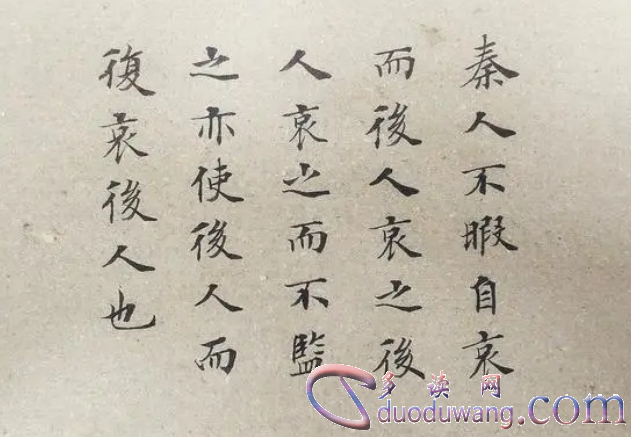 秦人不暇自哀
而後人哀之後
人哀之而不監
之亦使後人而
復哀後人也
多读网
duoduwang.com